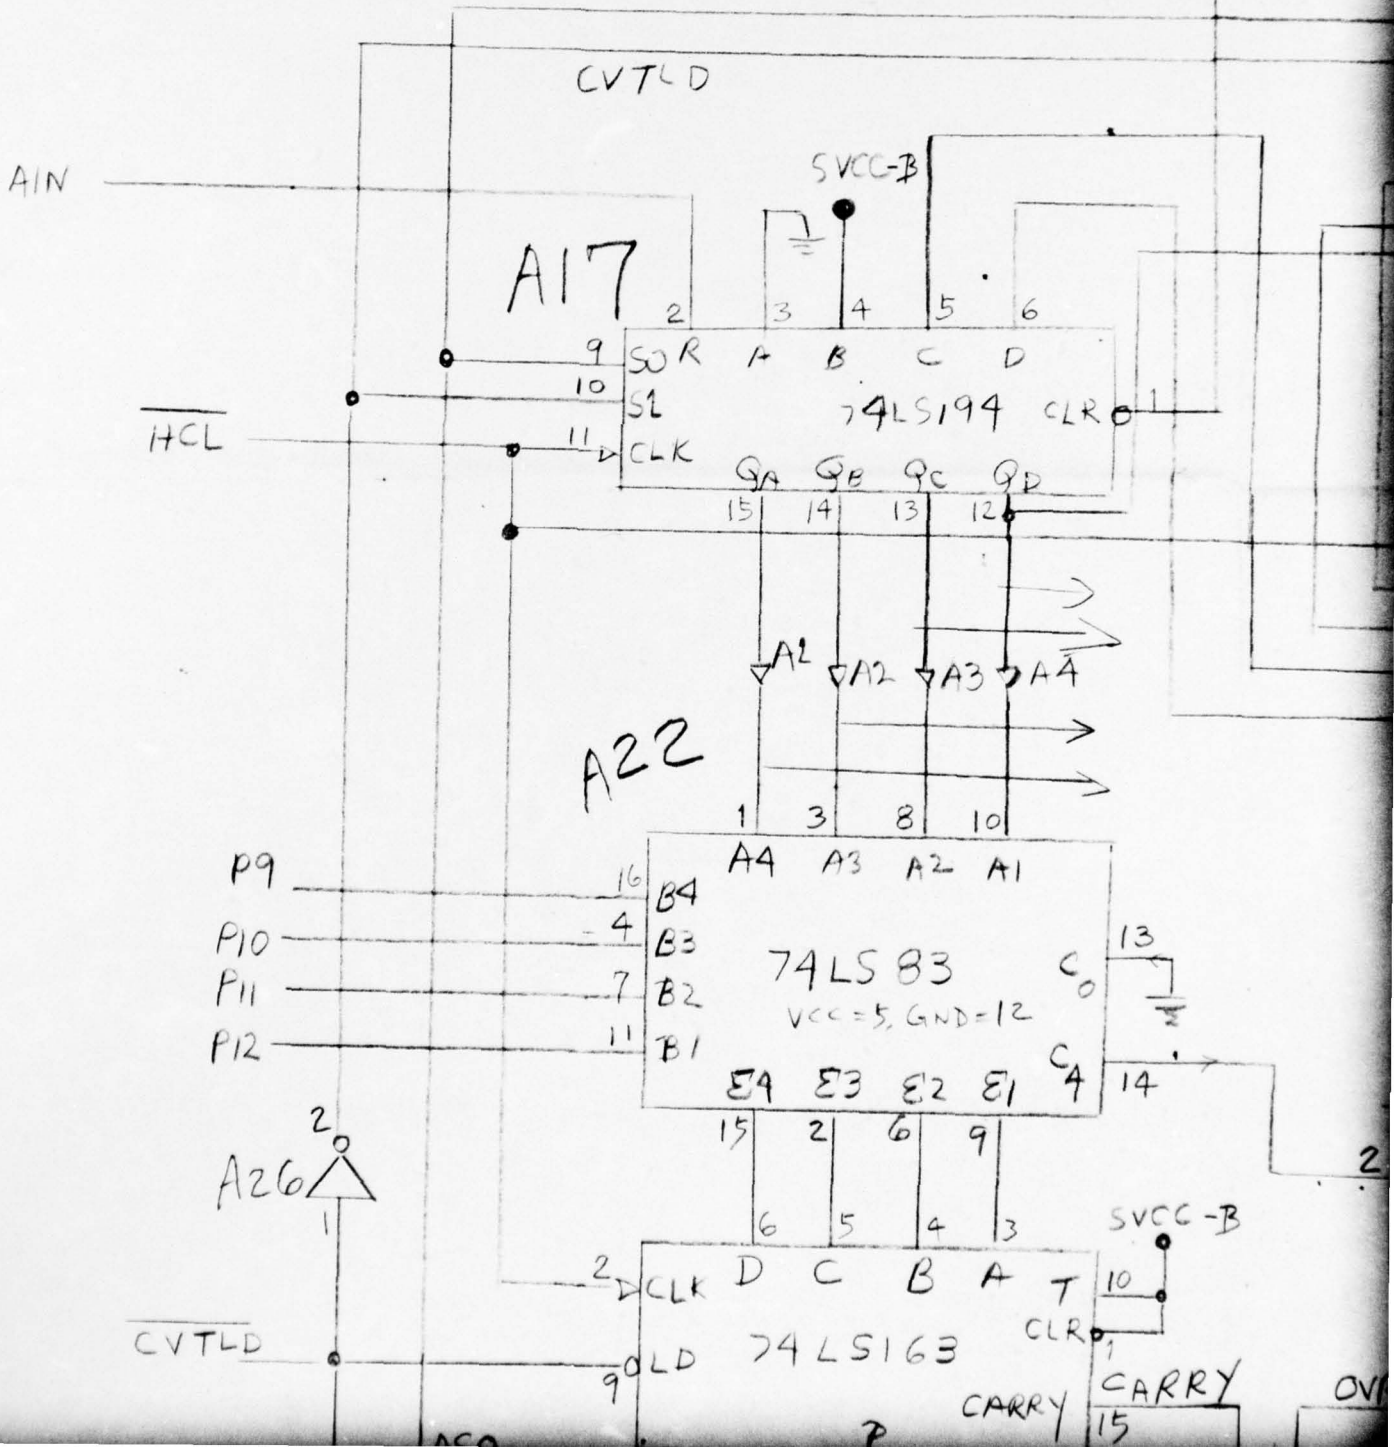 CVTLD
5VCC-B
AIN
A17
2 3 4 5 6
9 S0 R A B C D
10 S1 74LS194 CLR 1
HCL 11 CLK
QA QB QC QD
15 14 13 12
A1 A2 A3 A4
A22
1 3 8 10
A4 A3 A2 A1
P9 16 B4
P10 4 B3 13
P11 7 B2 74LS83 C0
VCC=5, GND=12
P12 11 B1 C4
Σ4 Σ3 Σ2 Σ1 14
15 2 6 9
2
2
A26
1
6 5 4 3 5VCC-B
2 CLK D C B A T 10
CLR 1
CVTLD 9 LD 74LS163
CARRY CARRY
15
P